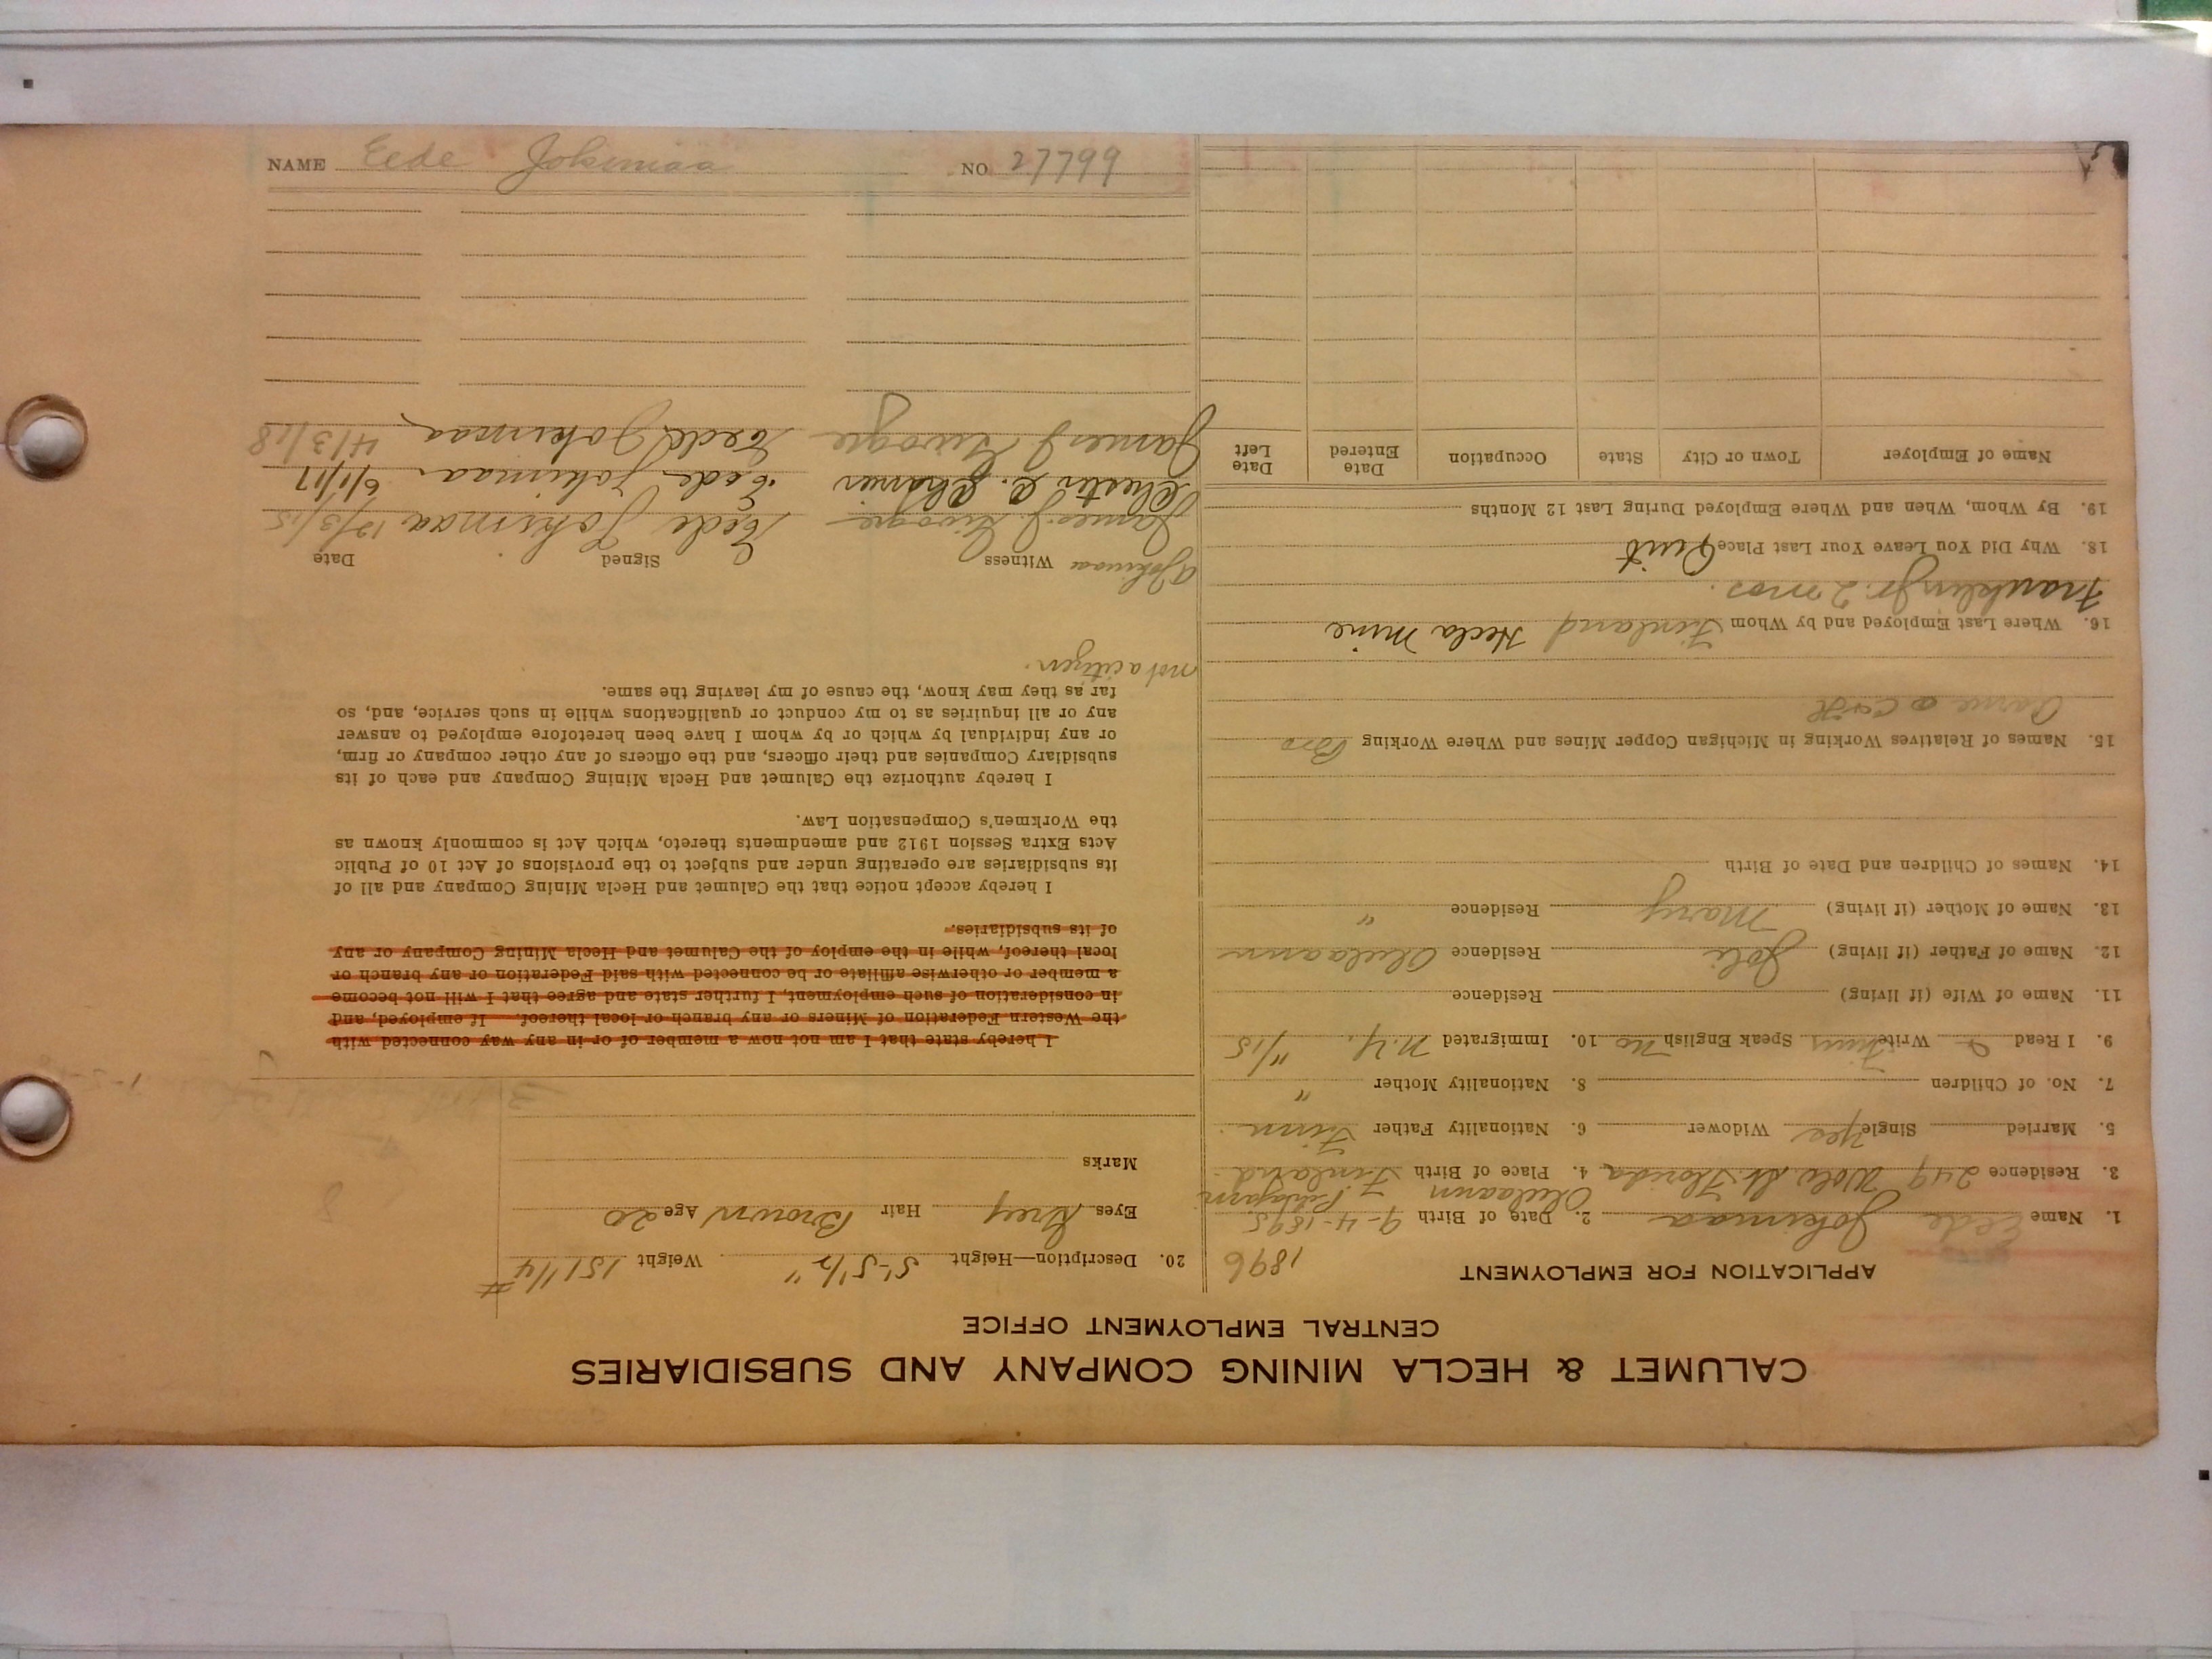 CALUMET & HECLA MINING COMPANY AND SUBSIDIARIES
CENTRAL EMPLOYMENT OFFICE
APPLICATION FOR EMPLOYMENT 1896
1. Name Eede Jokimaa 2. Date of Birth 9-4-1895
3. Residence 249 Wol. St. Florida 4. Place of Birth Finland
5. Married Single Yes Widower 6. Nationality Father Finn
7. No. of Children 8. Nationality Mother "
9. I Read & Write Finn Speak English No 10. Immigrated N.Y. 11/15
11. Name of Wife (if living) Residence
12. Name of Father (if living) Residence
13. Name of Mother (if living) Mary Residence "
14. Names of Children and Date of Birth
15. Names of Relatives Working in Michigan Copper Mines and Where Working Bro
Aarne @ C&H
16. Where Last Employed and by Whom Finland Hecla Mine
Franklin Jr. 2 mos.
18. Why Did You Leave Your Last Place Quit
19. By Whom, When and Where Employed During Last 12 Months
Name of Employer Town or City State Occupation Date Entered Date Left
20. Description—Height 5'-5 1/2" Weight 151 1/4 #
Eyes Grey Hair Brown Age 20
Marks
I hereby state that I am not now a member of or in any way connected with
the Western Federation of Miners or any branch or local thereof. If employed, and
in consideration of such employment, I further state and agree that I will not become
a member or otherwise affiliate or be connected with said Federation or any branch or
local thereof, while in the employ of the Calumet and Hecla Mining Company or any
of its subsidiaries.
I hereby accept notice that the Calumet and Hecla Mining Company and all of
its subsidiaries are operating under and subject to the provisions of Act 10 of Public
Acts Extra Session 1912 and amendments thereto, which Act is commonly known as
the Workmen's Compensation Law.
I hereby authorize the Calumet and Hecla Mining Company and each of its
subsidiary Companies and their officers, and the officers of any other company or firm,
or any individual by which or by whom I have been heretofore employed to answer
any or all inquiries as to my conduct or qualifications while in such service, and, so
far as they may know, the cause of my leaving the same.
not a citizen.
Jokimaa Witness Signed Date
James J. Eede Jokimaa 12/3/15
Eede Jokimaa 6/1/17
James J. Eede Jokimaa 4/3/18
NAME Eede Jokimaa NO 27799